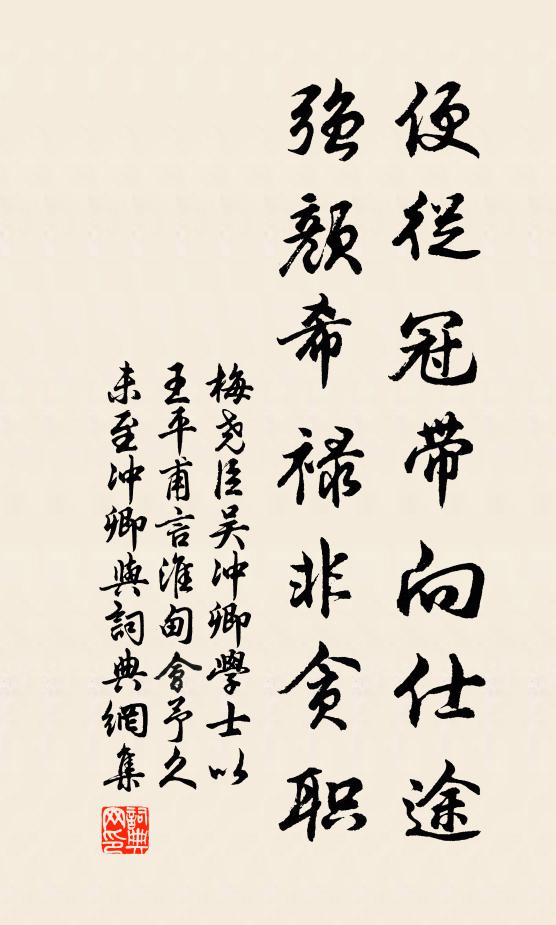 便從冠帶向仕途
強顏希禄非貪职
梅尧臣吴冲卿學士以
王平甫言淮甸會予久
未至冲卿與詞典網集
詞典
网印